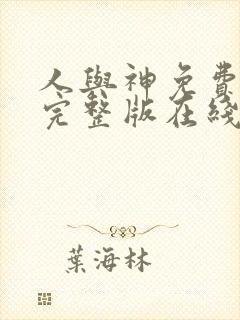 人與神免費
完整版在綫
葉海林